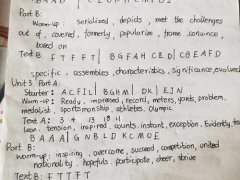 Part B:
Warm-up: Serialized, depicts, meet the challenges
out of, covered, formerly, popularise, from, convince,
based on
Text B: F T F F T | B G F A H C E D | C B E A F D
specific, assembles, characteristics, Significance, evolved
Unit 3. Part A:
Starter: A C F I L | B G H M | D K | E J N
Warm-up: Ready, improved, record, meters, yards, problem,
medalist, sportsmanship, athletes, Olympic
Text A: 3 4 13 18 11
less, tension, inspired, counts, instant, exception, Evidently,
B A A A | G N B L D K C M O E
Part B:
Warm-up: inspiring, overcome, succeed, competition, united
nationality, hopefuls, participate, cheer, strive
Text B: F T T F T